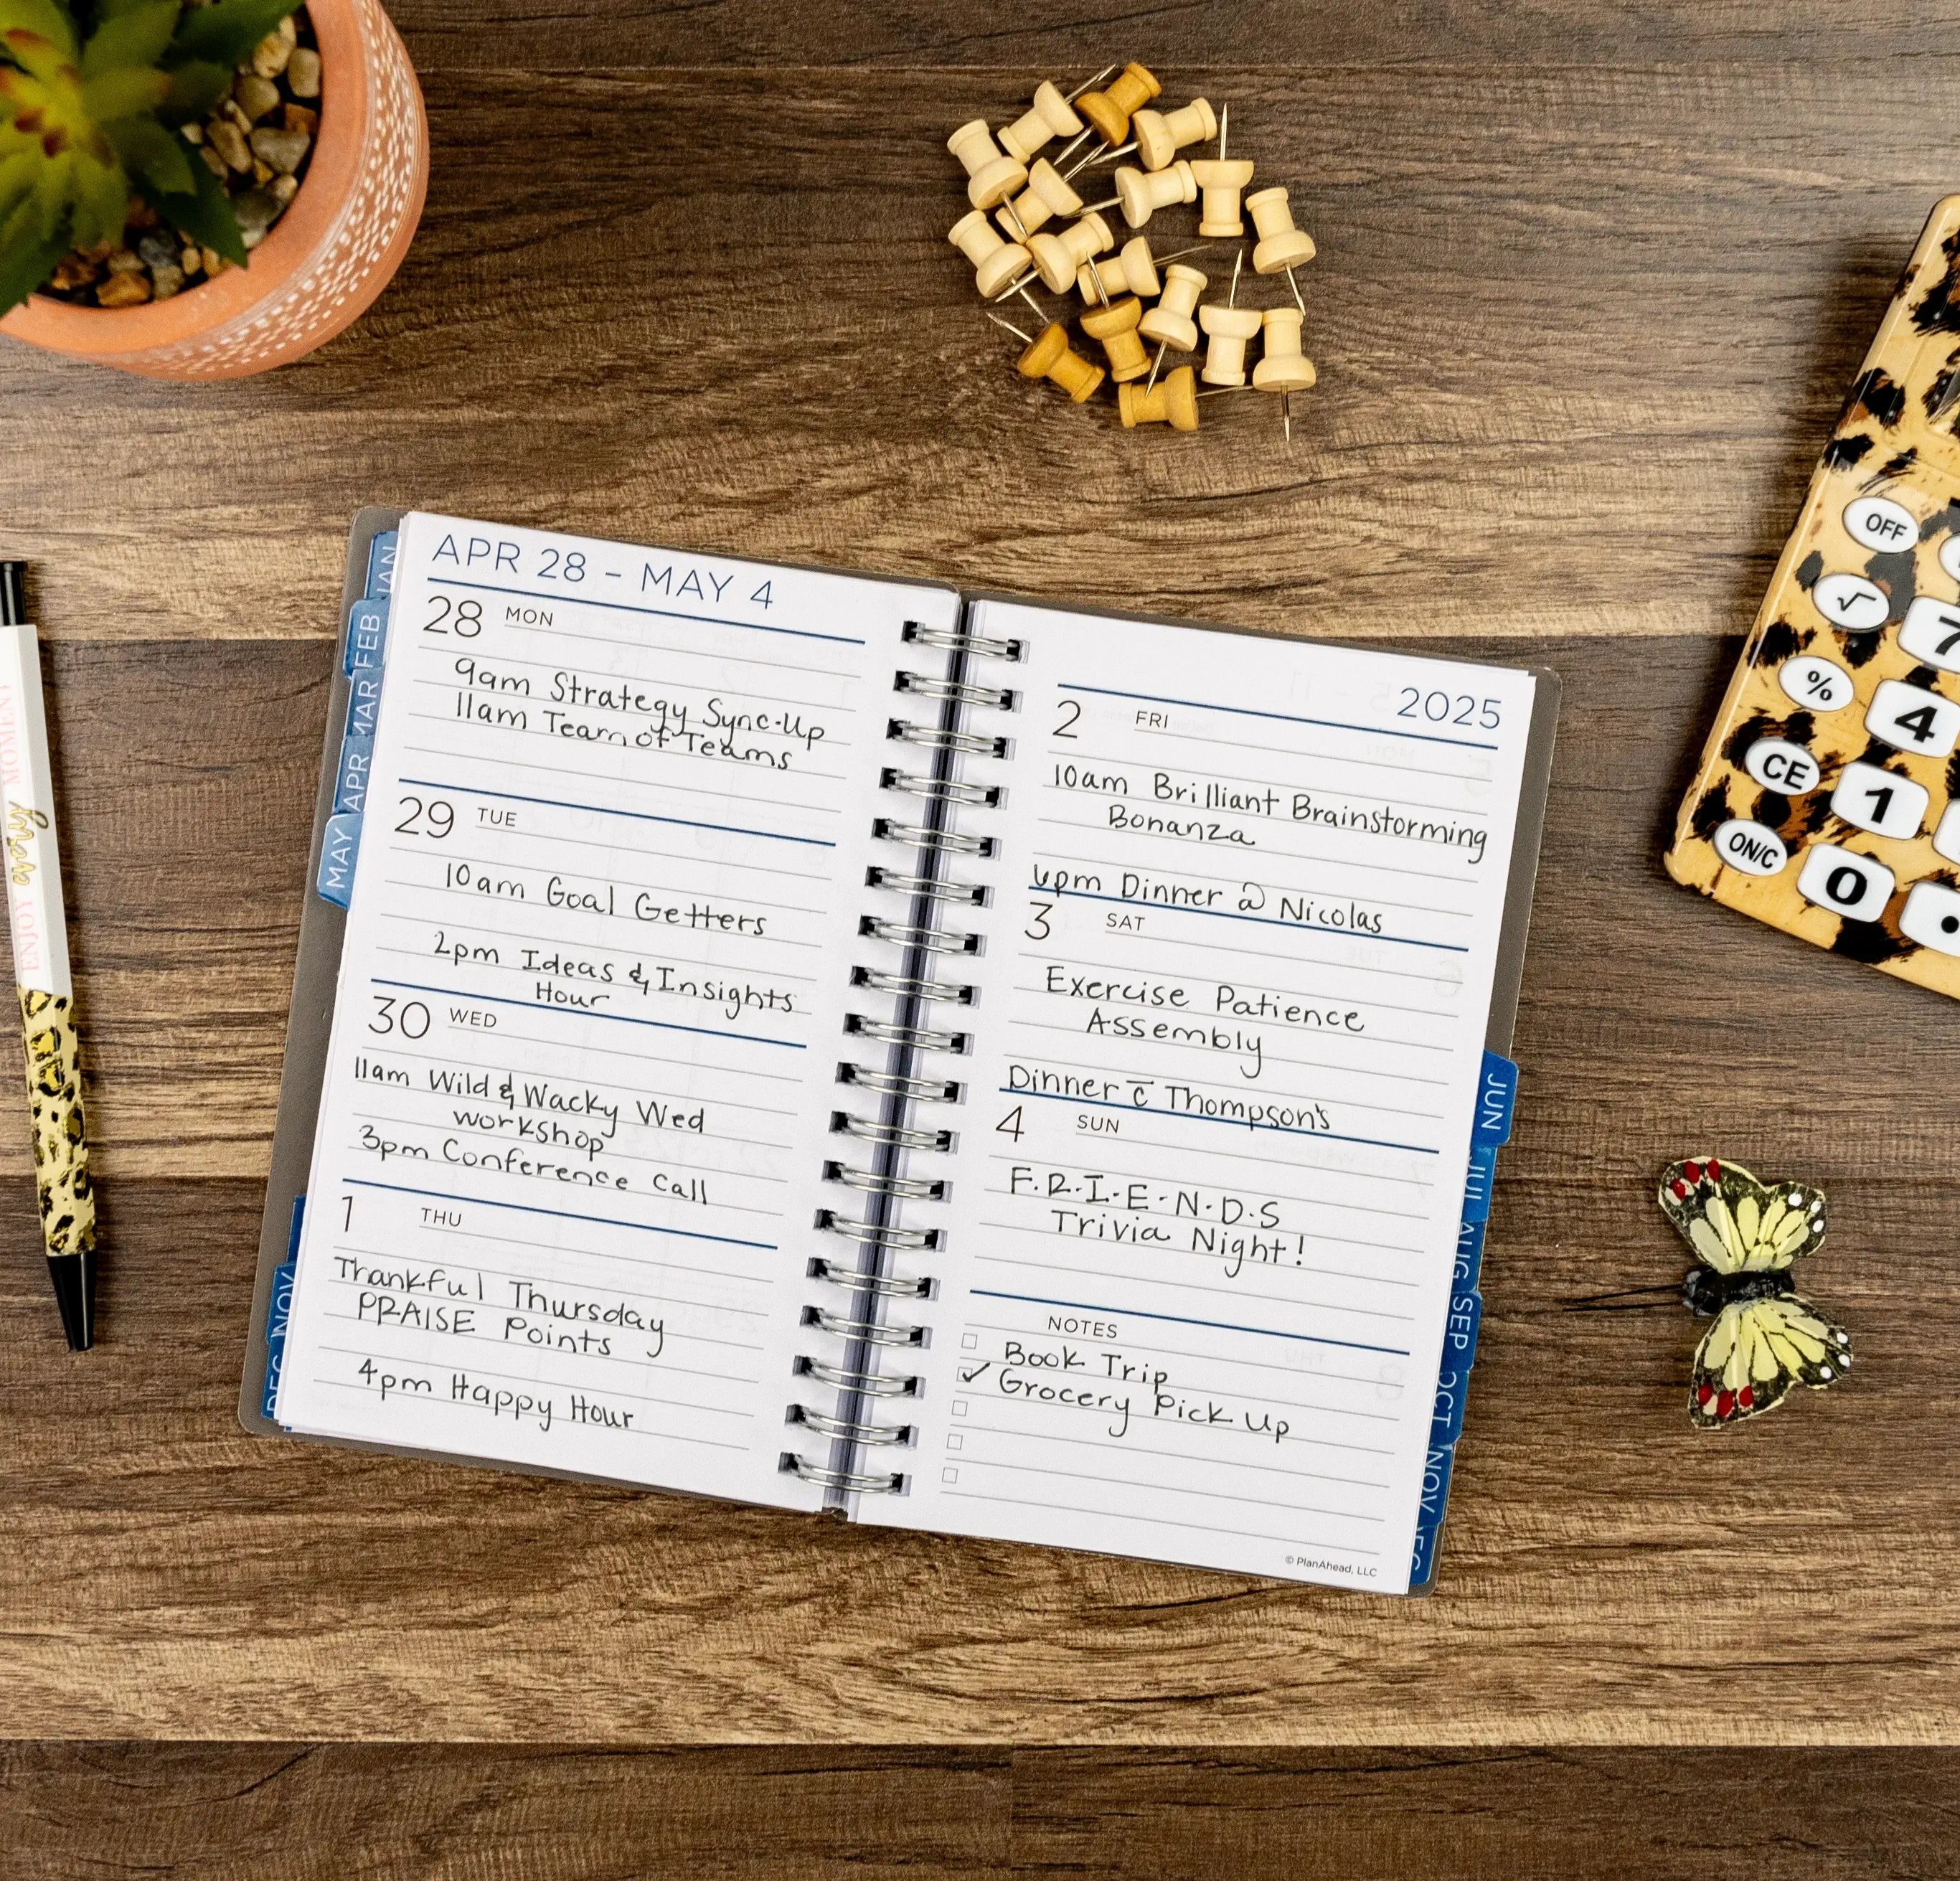 APR 28 - MAY 4
28 MON
9am Strategy Sync-Up
11am Team of Teams
29 TUE
10am Goal Getters
2pm Ideas & Insights
Hour
30 WED
11am Wild & Wacky Wed
workshop
3pm Conference Call
1 THU
Thankful Thursday
PRAISE Points
4pm Happy Hour
2025
2 FRI
10am Brilliant Brainstorming
Bonanza
6pm Dinner @ Nicolas
3 SAT
Exercise Patience
Assembly
Dinner c̄ Thompson's
4 SUN
F.R.I.E.N.D.S
Trivia Night!
NOTES
Book Trip
✓ Grocery Pick Up
© PlanAhead, LLC
JAN
FEB
MAR
APR
MAY
NOV
DEC
JUN
JUL
AUG
SEP
OCT
NOV
DEC
ENJOY every MOMENT
OFF
√ 7
% 4
CE 1
ON/C 0 .